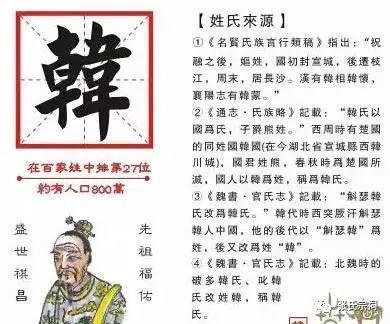 韓
在百家姓中排第27位
約有人口800萬
先祖福佑
盛世祺昌
【姓氏來源】
①《名賢氏族言行類稿》指出：“祝
融之後，嫗姓，國初封宣城，後遷枝
江，周末，居長沙。漢有韓相韓懷，
襄陽志有韓蒙。”
②《通志·氏族略》記載：“韓氏以
國爲氏，子爵熊姓。”西周時有楚國
的同姓國韓國(在今湖北省宣城縣西韓
川城)，國君姓熊，春秋時爲楚國所
滅，國人以韓爲姓，稱爲韓氏。
③《魏書·官氏志》記載：“斛瑟韓
氏改爲韓氏。”韓代時西突厥汗斛瑟
韓人中國，他的後代以“斛瑟韓”爲
姓，後又改爲姓“韓”。
④《魏書·官氏志》記載：北魏時的
破多韓氏、叱韓
氏改姓韓，稱韓
氏。
张氏宗祠